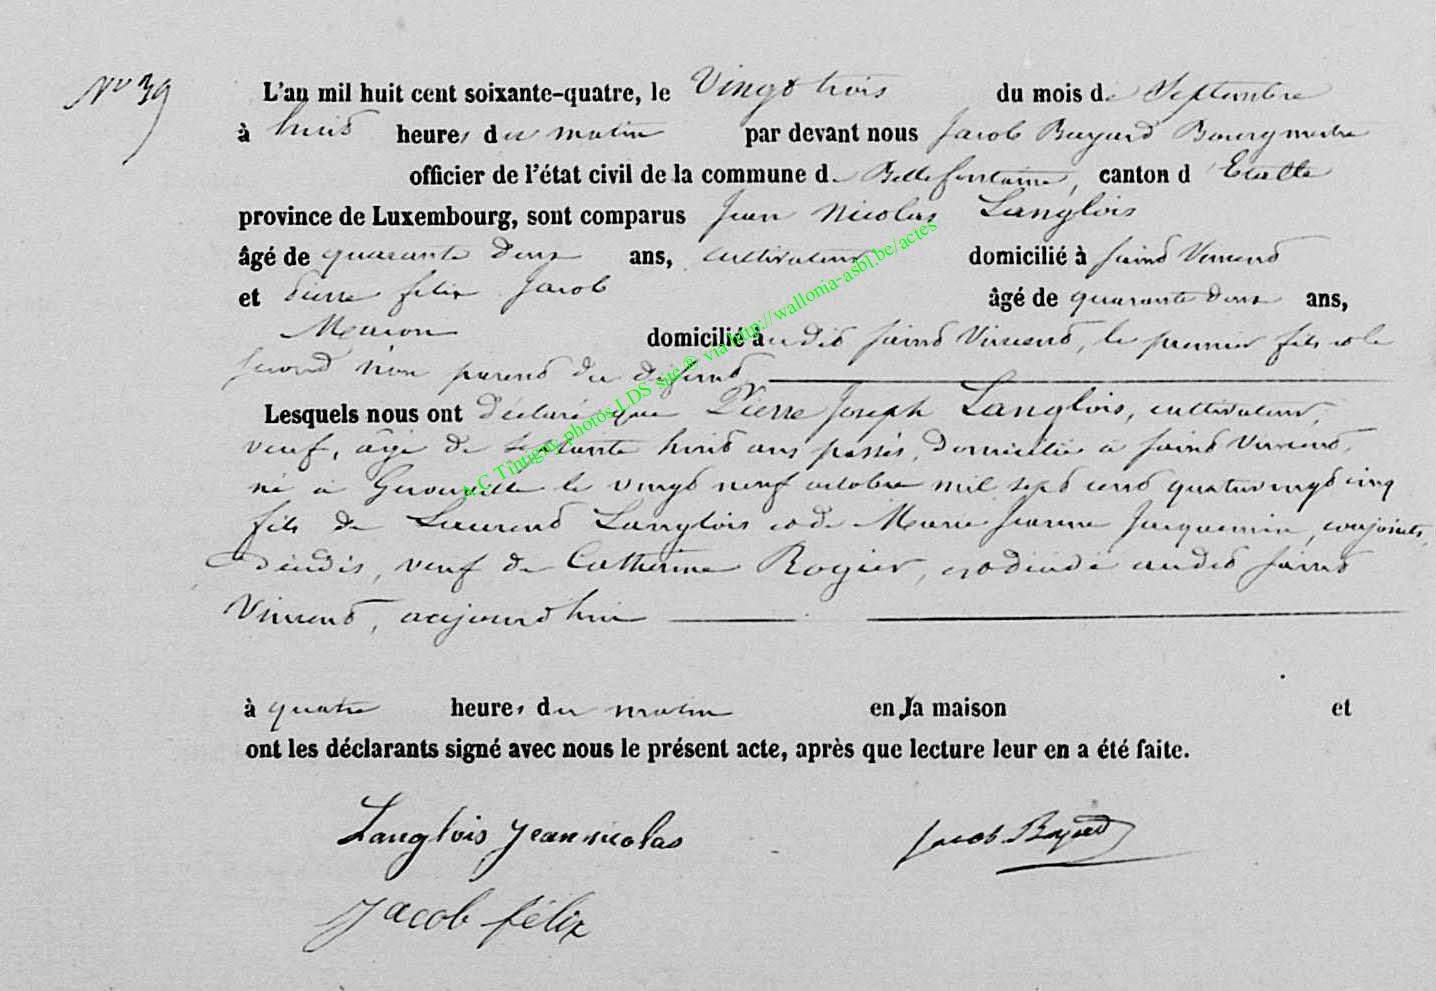 No 39
L'an mil huit cent soixante-quatre, le Vingt trois du mois de Septembre
à huit heures du matin par devant nous Jacob Bayard Bourgmestre
officier de l'état civil de la commune de Bellefontaine, canton d'Etalle
province de Luxembourg, sont comparus Jean Nicolas Langlois
âgé de quarante deux ans, cultivateur domicilié à saint Vincent
et Pierre felix Jacob âgé de quarante deux ans,
Macon domicilié audit saint Vincent, le premier fils et le
second non parent du défunt
Lesquels nous ont déclaré que Pierre Joseph Langlois, cultivateur,
veuf, âgé de septante huit ans passés, domicilié à saint Vincent,
né à Gerouville le vingt neuf octobre mil sept cent quatrevingt cinq
fils de Laurent Langlois et de Marie Jeanne Jacquemin, conjoints,
décédés, veuf de Catherine Rogier, est décédé audit saint
Vincent, aujourd'hui
à quatre heures du matin en sa maison et
ont les déclarants signé avec nous le présent acte, après que lecture leur en a été faite.
Langlois jean nicolas Jacob Bayard
Jacob félix
A.C Tintigny photos LDS site ® via http://wallonia-asbl.be/actes